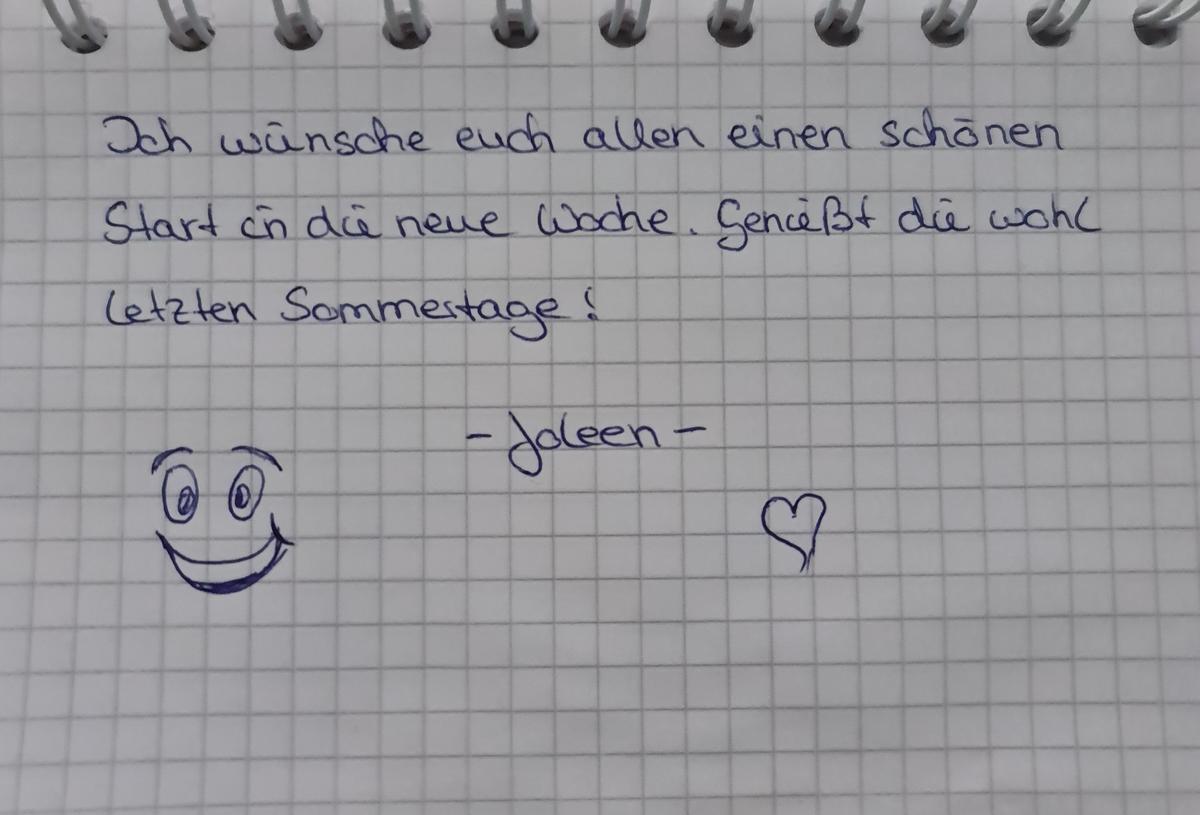 Ich wünsche euch allen einen schönen
Start in die neue Woche. Genießt die wohl
letzten Sommertage!
- Joleen -